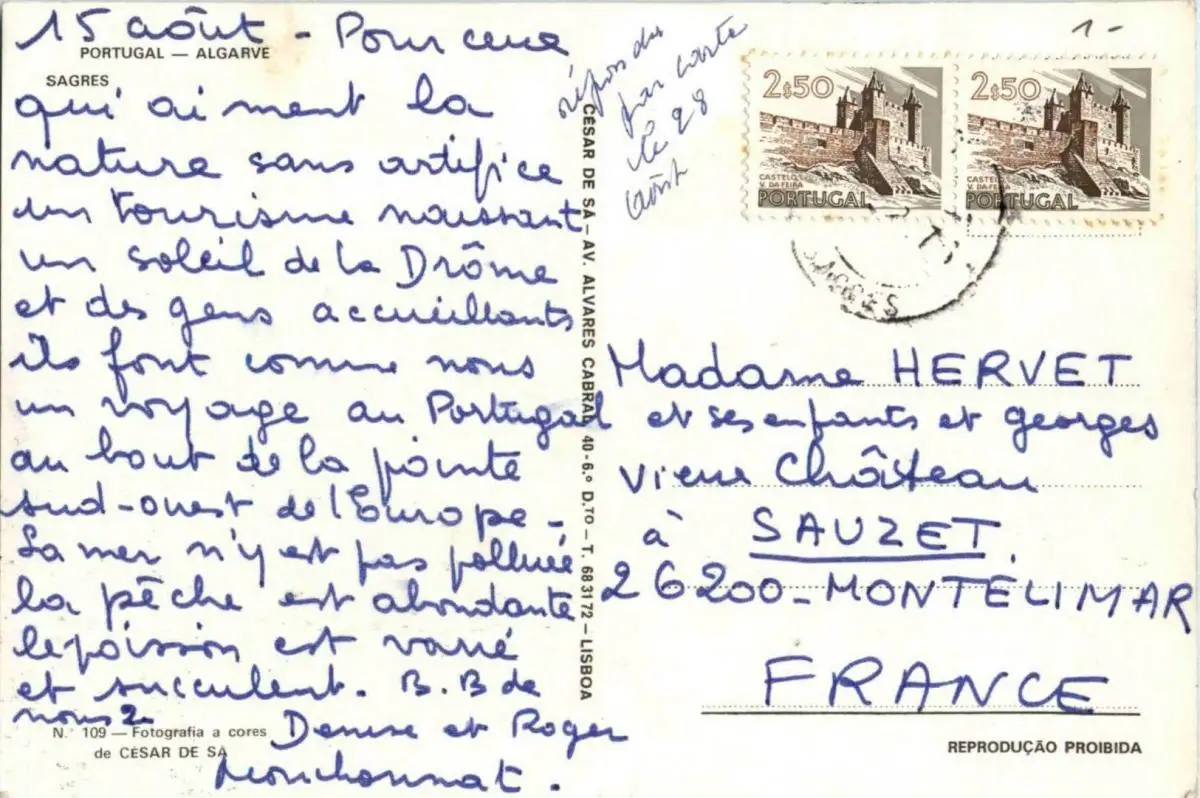 15 août - Pour ceux
PORTUGAL — ALGARVE
SAGRES
qui aiment la
nature sans artifice
un tourisme naissant,
un soleil de la Drôme
et des gens accueillants
ils font comme nous
un voyage au Portugal
au bout de la pointe
sud-ouest de l'Europe -
La mer n'y est pas polluée
la pêche est abondante
le poisson est varié
et succulent. B. B de
nous 2
Denise et Roger
N.º 109 — Fotografia a cores
de CÉSAR DE SÁ
CÉSAR DE SÁ — AV. ALVARES CABRAL 40-6.º D.TO — T. 683172 — LISBOA
répondu
par carte
le 28
août
1-
2$50
CASTELO
V. DA FEIRA
PORTUGAL
2$50
CASTELO
V. DA FEIRA
PORTUGAL
SAGRES
Madame HERVET
et ses enfants et georges
vieux Château
à SAUZET.
26200 - MONTÉLIMAR
FRANCE
REPRODUÇÃO PROIBIDA